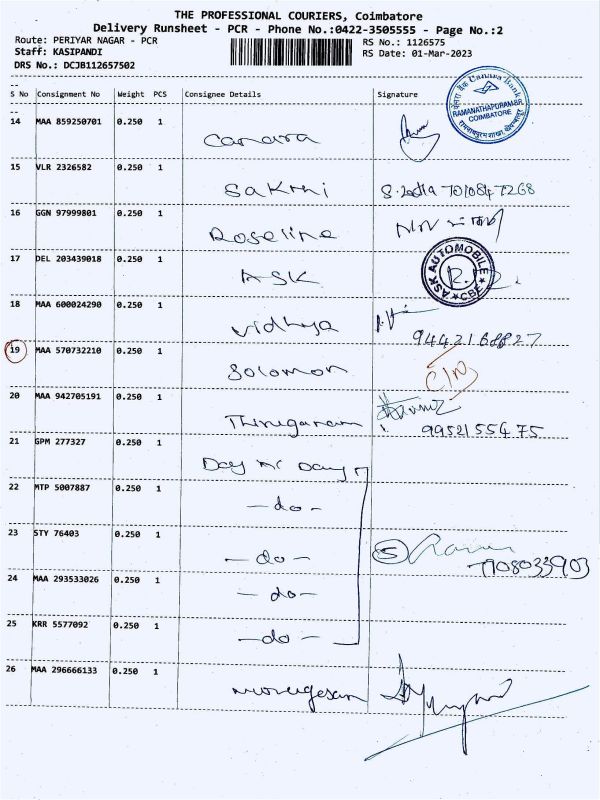 THE PROFESSIONAL COURIERS, Coimbatore
Delivery Runsheet - PCR - Phone No.:0422-3505555 - Page No.:2
Route: PERIYAR NAGAR - PCR
RS No.: 1126575
Staff: KASIPANDI
RS Date: 01-Mar-2023
DRS No.: DCJB112657502
S No Consignment No Weight PCS Consignee Details Signature
Canara Bank
RAMANATHAPURAM-BR
COIMBATORE
14 MAA 859250701 0.250 1
Canara
15 VLR 2326582 0.250 1
Sakthi 7010847268
16 GGN 97999801 0.250 1
Roseline
17 DEL 203439018 0.250 1
ASK
ASK AUTOMOBILE
CBE
18 MAA 600024290 0.250 1
Vidhya 9442168827
19 MAA 570732210 0.250 1
Solomon
20 MAA 942705191 0.250 1
9952155475
21 GPM 277327 0.250 1
Day
22 MTP 5007887 0.250 1
-do-
23 STY 76403 0.250 1
-do- 5
7708033903
24 MAA 293533026 0.250 1
-do-
25 KRR 5577092 0.250 1
-do-
26 MAA 296666133 0.250 1
Murugesan